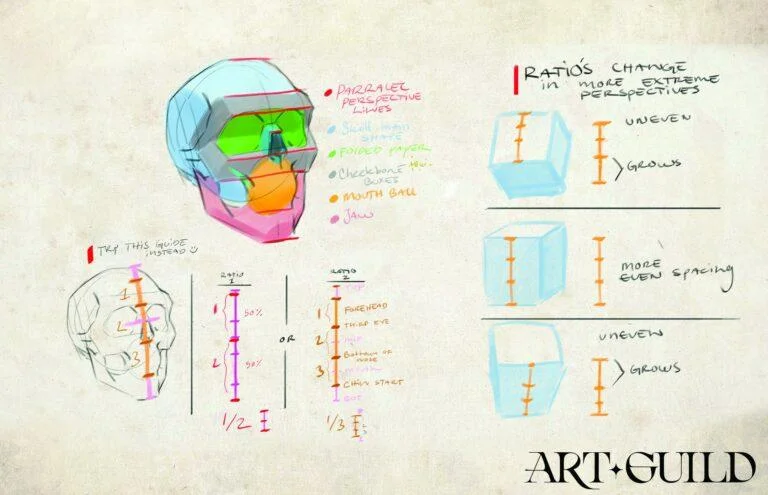 PARRALEL
PERSPECTIVE
LINES
Skull main
SHAPE
FOLDED PAPER
Cheekbone
BOXES
MOUTH BALL
JAW
TRY THIS GUIDE
INSTEAD
1
2
3
RATIO
1
1
50%
2
50%
1/2
OR
RATIO
2
TOP
1
FOREHEAD
THIRD EYE
2
MID
BOTTOM OF
NOSE
3
MOUTH
CHIN START
BOT
1/3
RATIO'S CHANGE
in MORE EXTREME
PERSPECTIVES
UNEVEN
GROWS
MORE
EVEN SPACING
UNEVEN
GROWS
ART GUILD